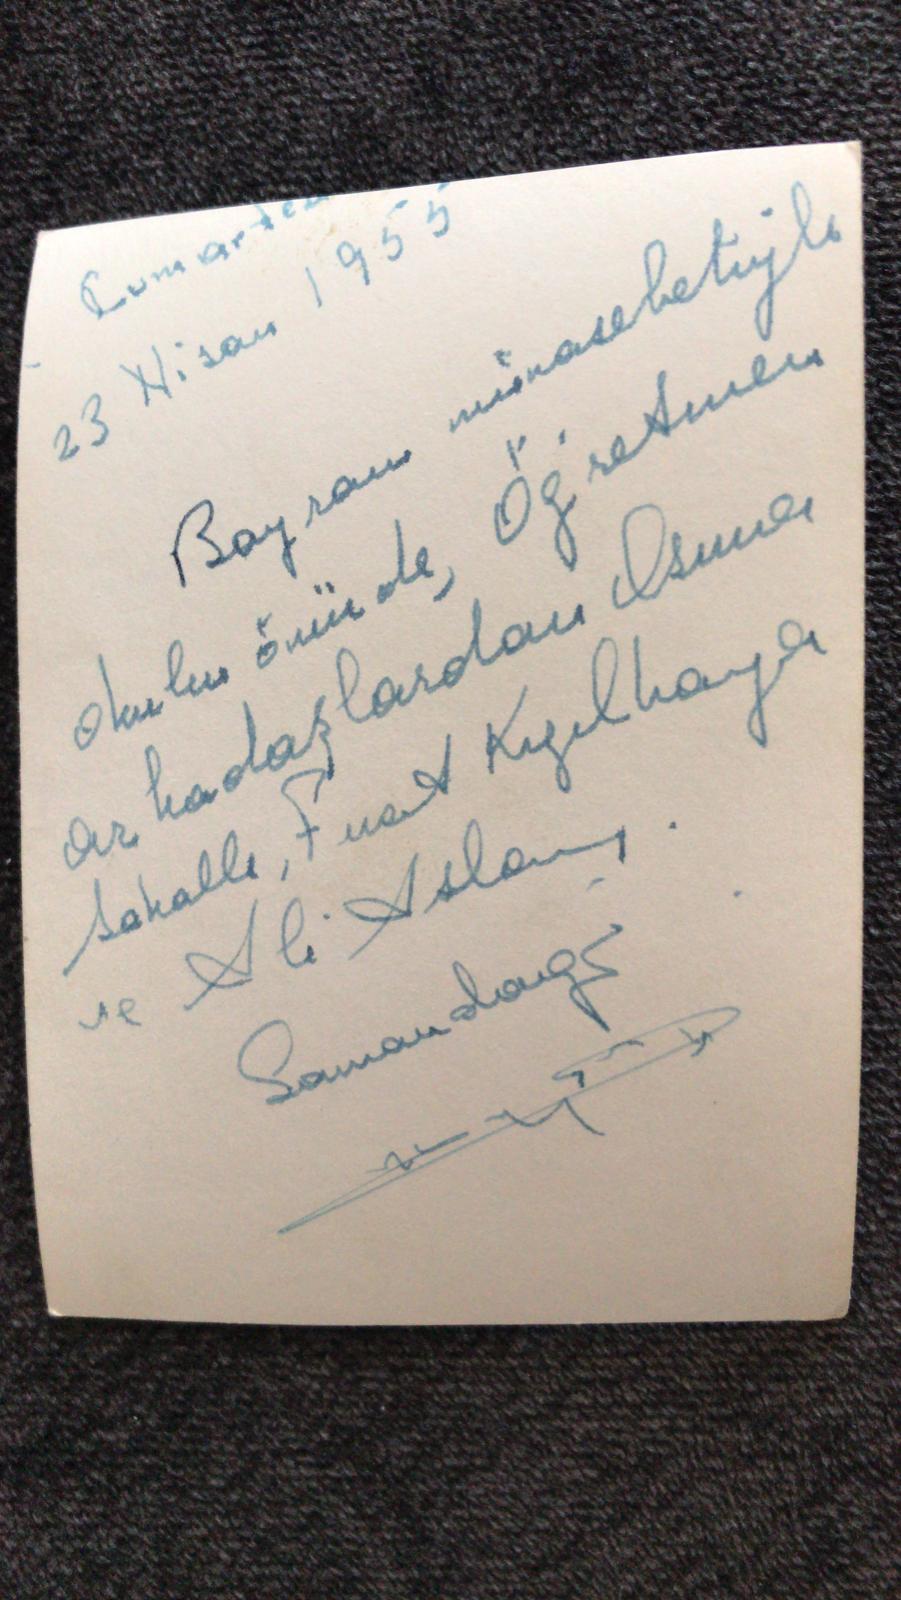 Cumartesi
23 Nisan 1955
Bayram münasebetiyle
okulun önünde, Öğretmen
arkadaşlardan Osman
Sakallı, Fuat Kızılkaya
ve Ali Aslan,.
Samandağı